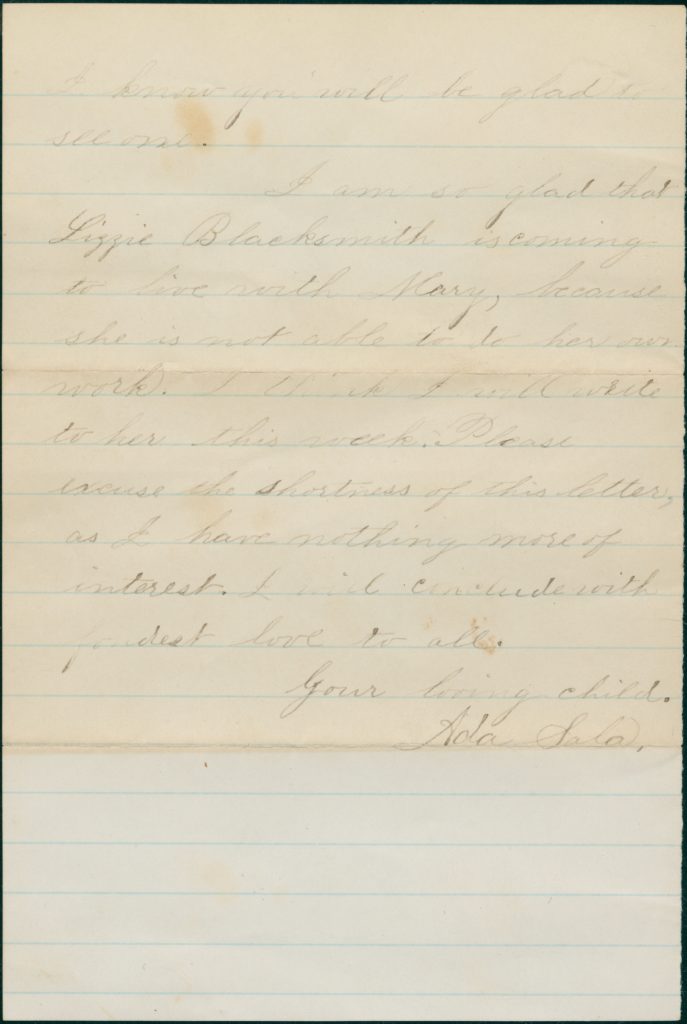 I know you will be glad to
see one.
I am so glad that
Lizzie Blacksmith is coming
to live with Mary, because
she is not able to do her own
work. I think I will write
to her this week. Please
excuse the shortness of this letter,
as I have nothing more of
interest. I will conclude with
fondest love to all.
Your loving child.
Ada Sala.